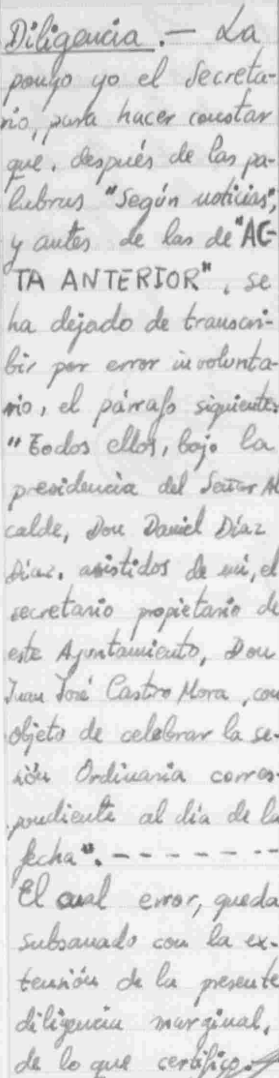 Diligencia.- La
pongo yo el Secreta-
rio, para hacer constar
que, después de las pa-
labras "Según noticias",
y antes de las de "AC-
TA ANTERIOR", se
ha dejado de transcri-
bir por error involunta-
rio, el párrafo siguiente:
"Todos ellos, bajo la
presidencia del Señor Al
calde, Don Daniel Díaz
Díaz, asistidos de mi, el
secretario propietario de
este Ayuntamiento, Don
Juan José Castro Mora, con
objeto de celebrar la se-
sión Ordinaria corres-
pondiente al día de la
fecha". - - - - - - -
El cual error, queda
subsanado con la ex-
tensión de la presente
diligencia marginal,
de lo que certifico.